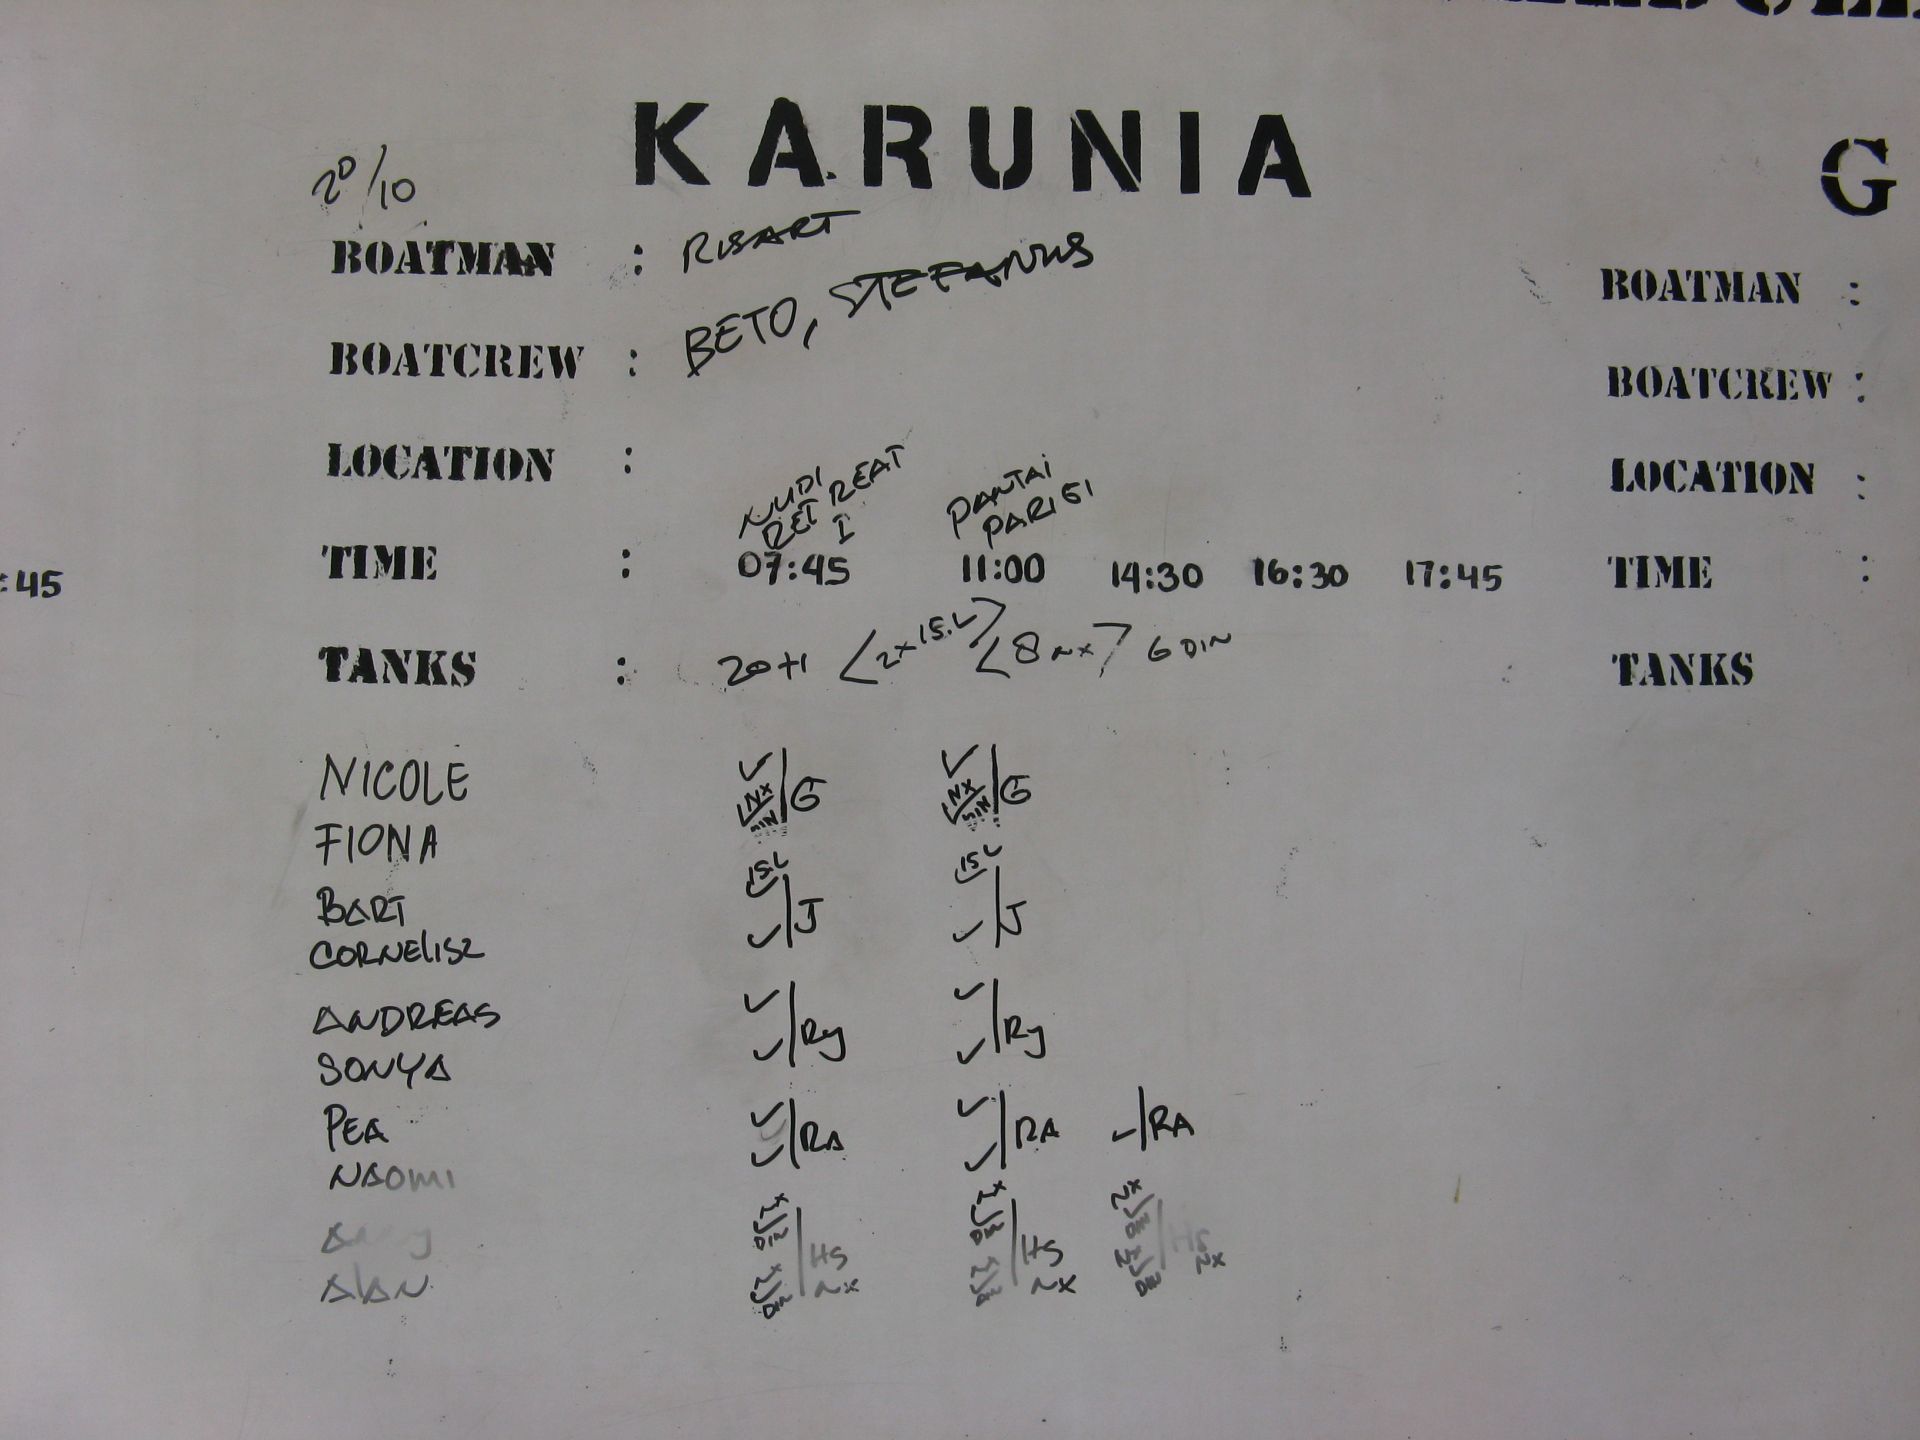 KARUNIA
G
20/10
BOATMAN : RISART
BOATCREW : BETO, STEFANUS
LOCATION :
NUDI RETREAT I
PANTAI PARIGI
TIME : 07:45 11:00 14:30 16:30 17:45
TANKS : 20+1 <2x15.L> <8 NX> 6 DIN
NICOLE ✓ NX MIN / G ✓ NX MIN / G
FIONA
BART 15.L ✓ / J 15.L ✓ / J
CORNELISZ ✓ ✓
ANDREAS ✓ / Ry ✓ / Ry
SONYA ✓ ✓
PEA ✓ / RA ✓ / RA ✓ / RA
NAOMI ✓ ✓
NX ✓ DIN / HS NX ✓ DIN / HS NX ✓ DIN / HS
ALAN NX ✓ DIN NX NX ✓ DIN NX NX ✓ DIN NX
:45
BOATMAN :
BOATCREW :
LOCATION :
TIME :
TANKS